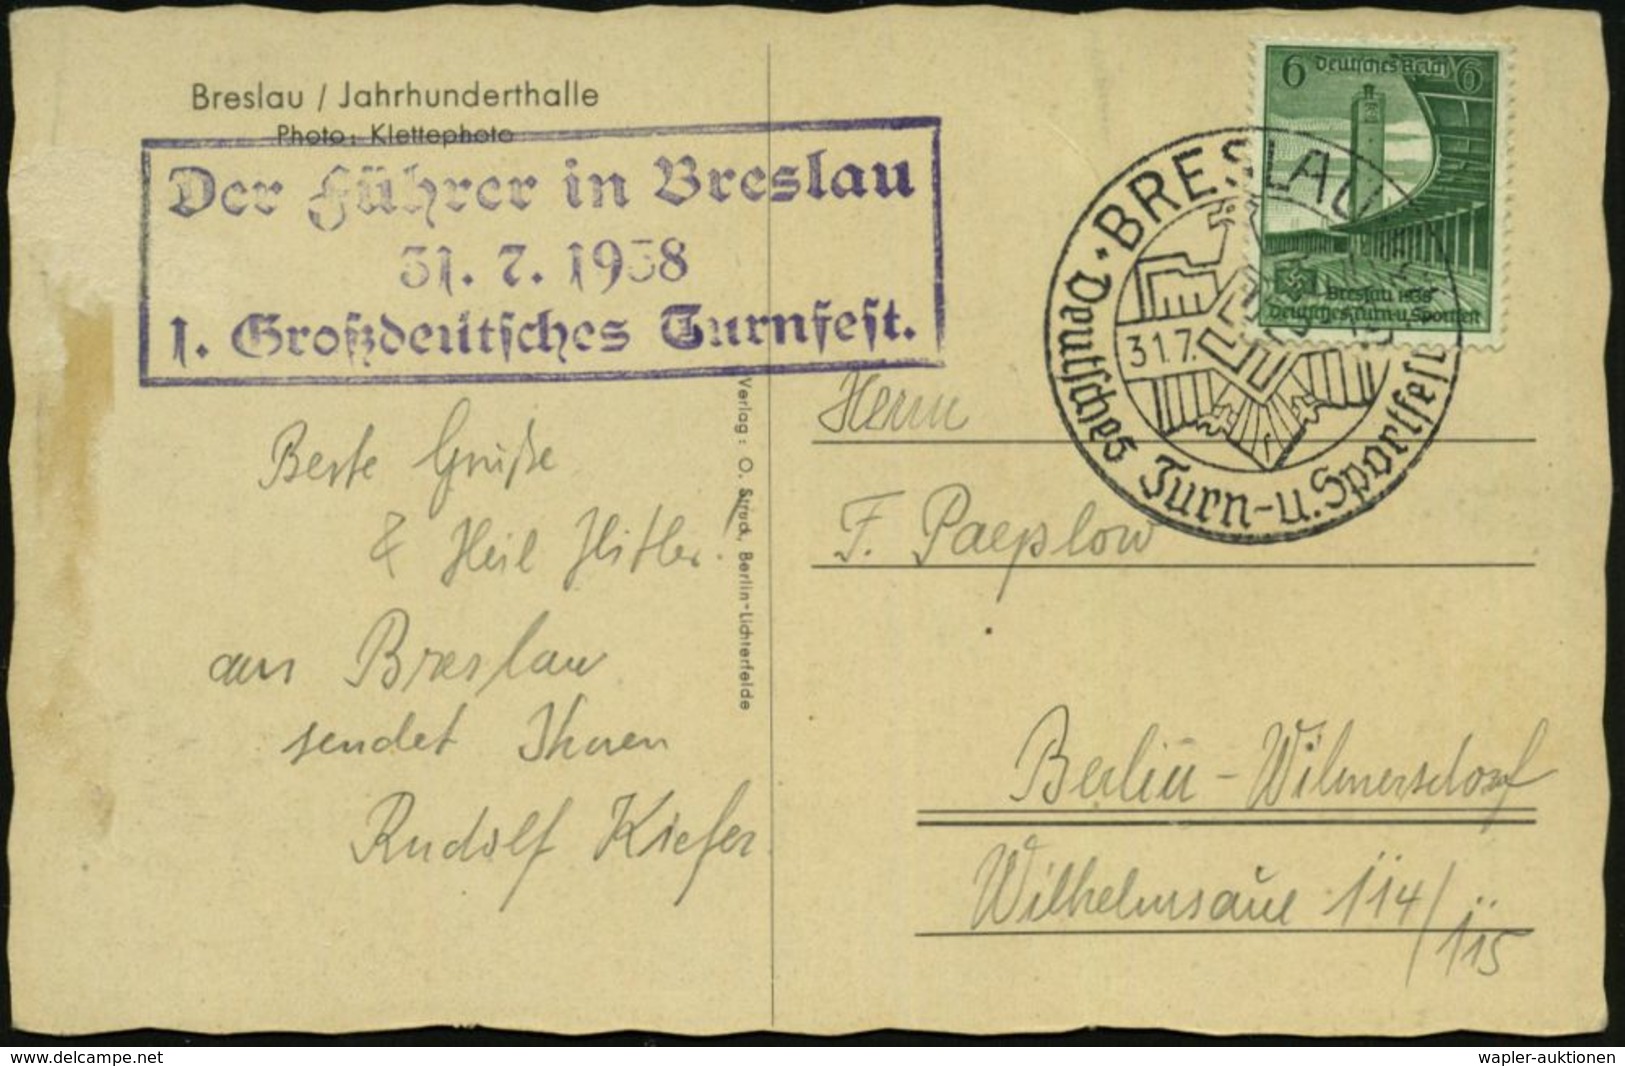 Breslau / Jahrhunderthalle
Photo: Klettephoto
Der Führer in Breslau
31. 7. 1938
1. Großdeutsches Turnfest.
Beste Grüße
& Heil Hitler.
aus Breslau
sendet Ihnen
Rudolf Kiefer
Verlag: O. Struck, Berlin-Lichterfelde
6 Deutsches Reich 6
Breslau 1938
Deutsches Turn-u.Sportfest
BRESLAU
31.7.
Deutsches Turn-u.Sportfest
Herrn
F. Paeplow
Berlin-Wilmersdorf
Wilhelmsaue 114/
115
www.delcampe.net
wapler-auktionen